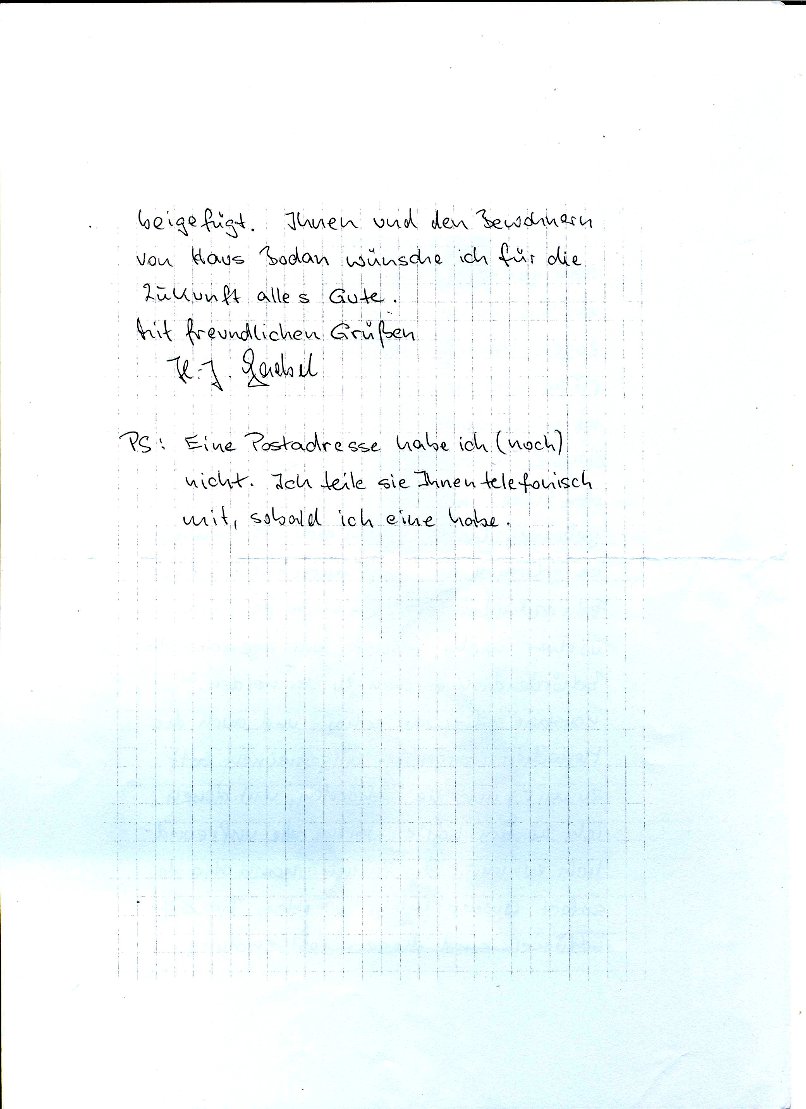 beigefügt. Ihnen und den Bewohnern
von Haus Bodan wünsche ich für die
Zukunft alles Gute.
Mit freundlichen Grüßen
H.-J.
PS: Eine Postadresse habe ich (noch)
nicht. Ich teile sie Ihnen telefonisch
mit, sobald ich eine habe.